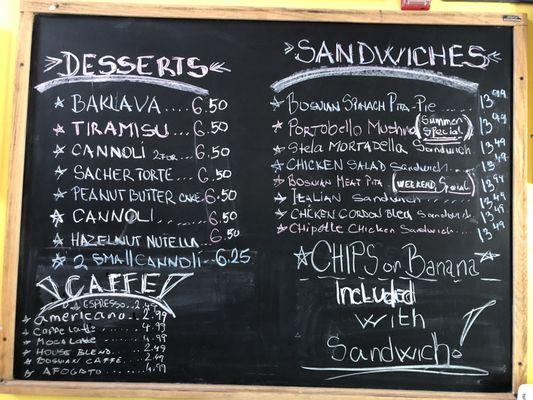 DESSERTS
BAKLAVA .... 6.50
TIRAMISU ..... 6.50
CANNOLI 2 FOR ... 6.50
SACHER TORTE .... 6.50
PEANUT BUTTER CAKE 6.50
CANNOLI ..... 6.50
HAZELNUT NUTELLA ... 6.50
2 SMALL CANNOLI - 6.25
CAFFE
ESPRESSO .. 2.49
americano .. 2.99
Caffe Latte .. 4.99
MOCA Latte .... 4.99
HOUSE BLEND ..... 2.49
BOSNIAN CAFFE ... 2.49
AFOGATO ...... 4.99
SANDWICHES
BOSNIAN SPINACH PITA-Pie ...... 13.99
PORTOBELLO MUSHRO (SUMMER SPECIAL) 13.99
Stela MORTADELLA Sandwich 13.49
CHICKEN SALAD Sandwich ..... 13.49
BOSNIAN MEAT PITA (WEEKEND SPECIAL) 13.99
ITALIAN Sandwich ....... 13.49
CHICKEN CORDON BLEU Sandwich 13.49
Chipotle Chicken Sandwich .... 13.49
CHIPS or Banana
Included
with
Sandwich!